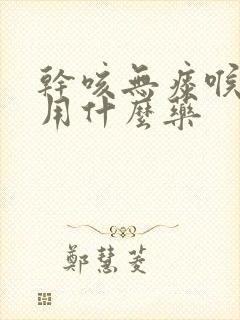 幹咳無痰喉
用什麼藥
鄭慧菱